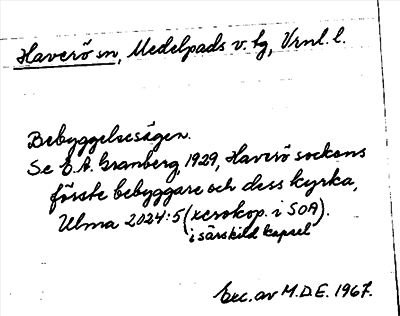 Haverö sn, Medelpads v. tg, Vrnl. l.
Bebyggelsesägen.
Se E.A. Granberg, 1929, Haverö sockens
förste bebyggare och dess kyrka,
Ulma 2024:5 (xerokop. i SOA).
i särskild kapsel
Exc. av M.D.E. 1967.